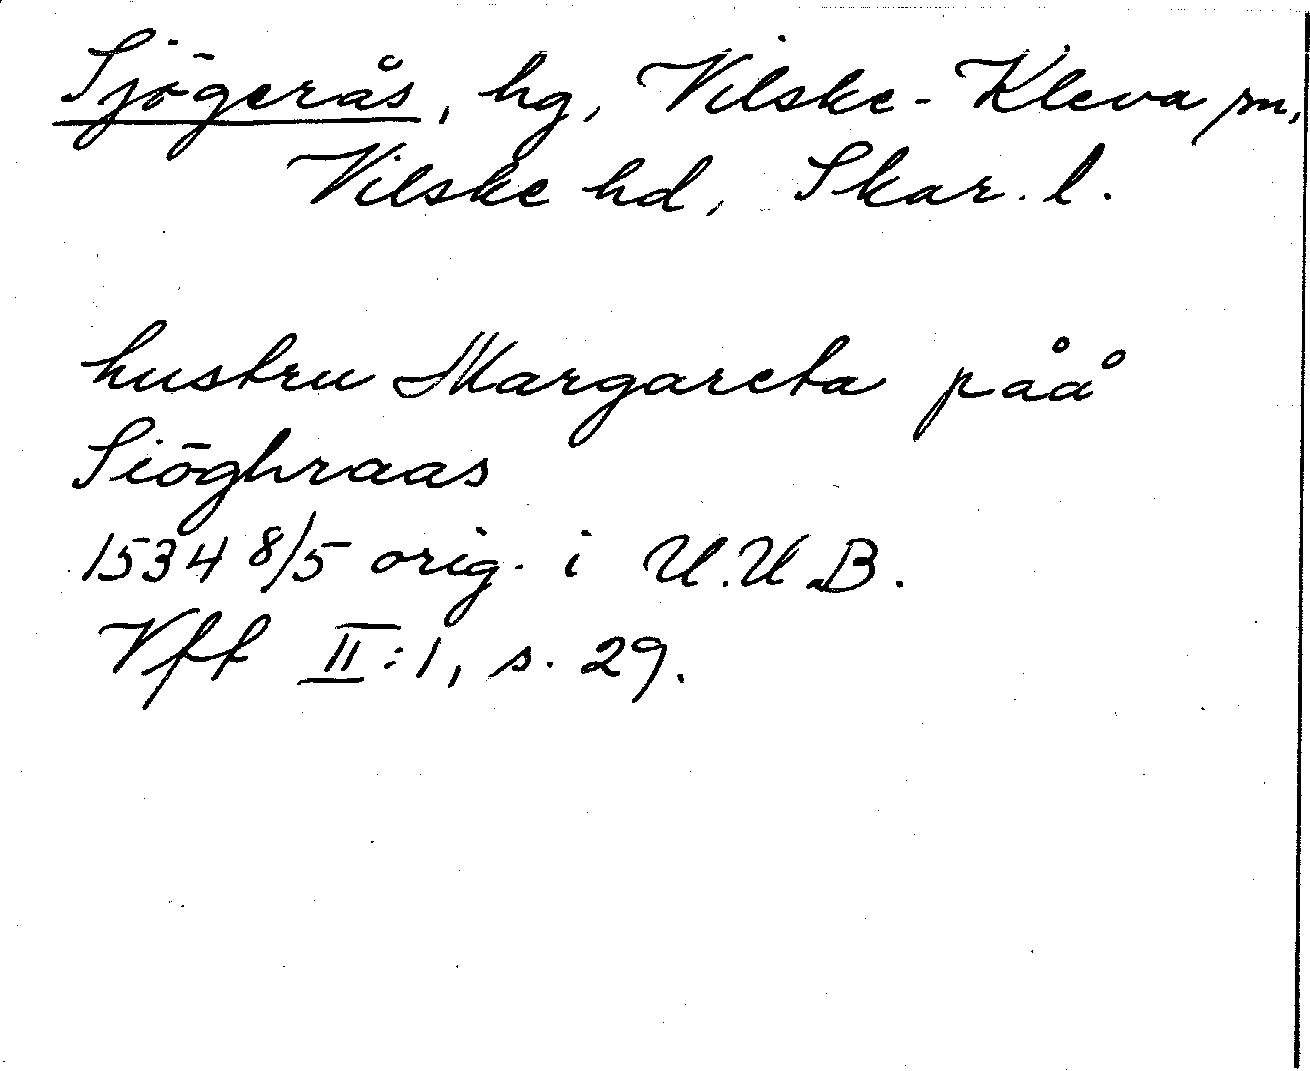 Sjögerås, hg, Vilske-Kleva sn,
Vilske hd, Skar. l.
hustru Margareta påå
Siöghraas
1534 8/5 orig. i U.U.B.
Vff II:1, s. 29.